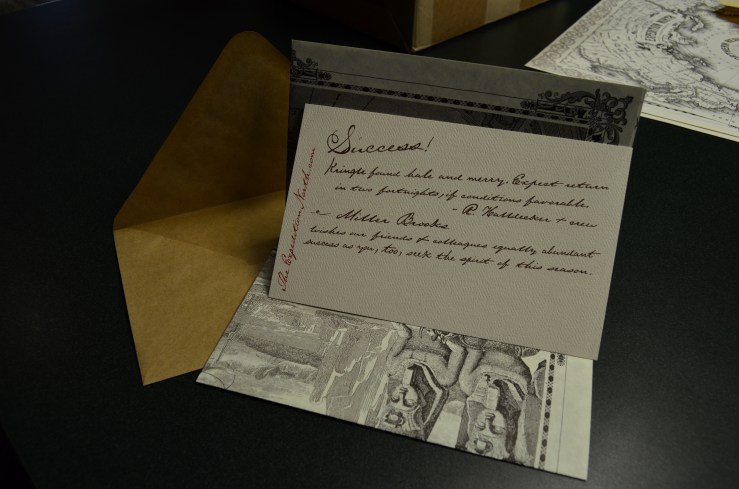 Success!
Kringle found hale and merry. Expect return
in two fortnights, if conditions favorable
- R. Halldecker + crew
~ Miller Brooks
wishes our friends & colleagues equally abundant
success as you, too, seek the spirit of this season.
The Expedition North.com